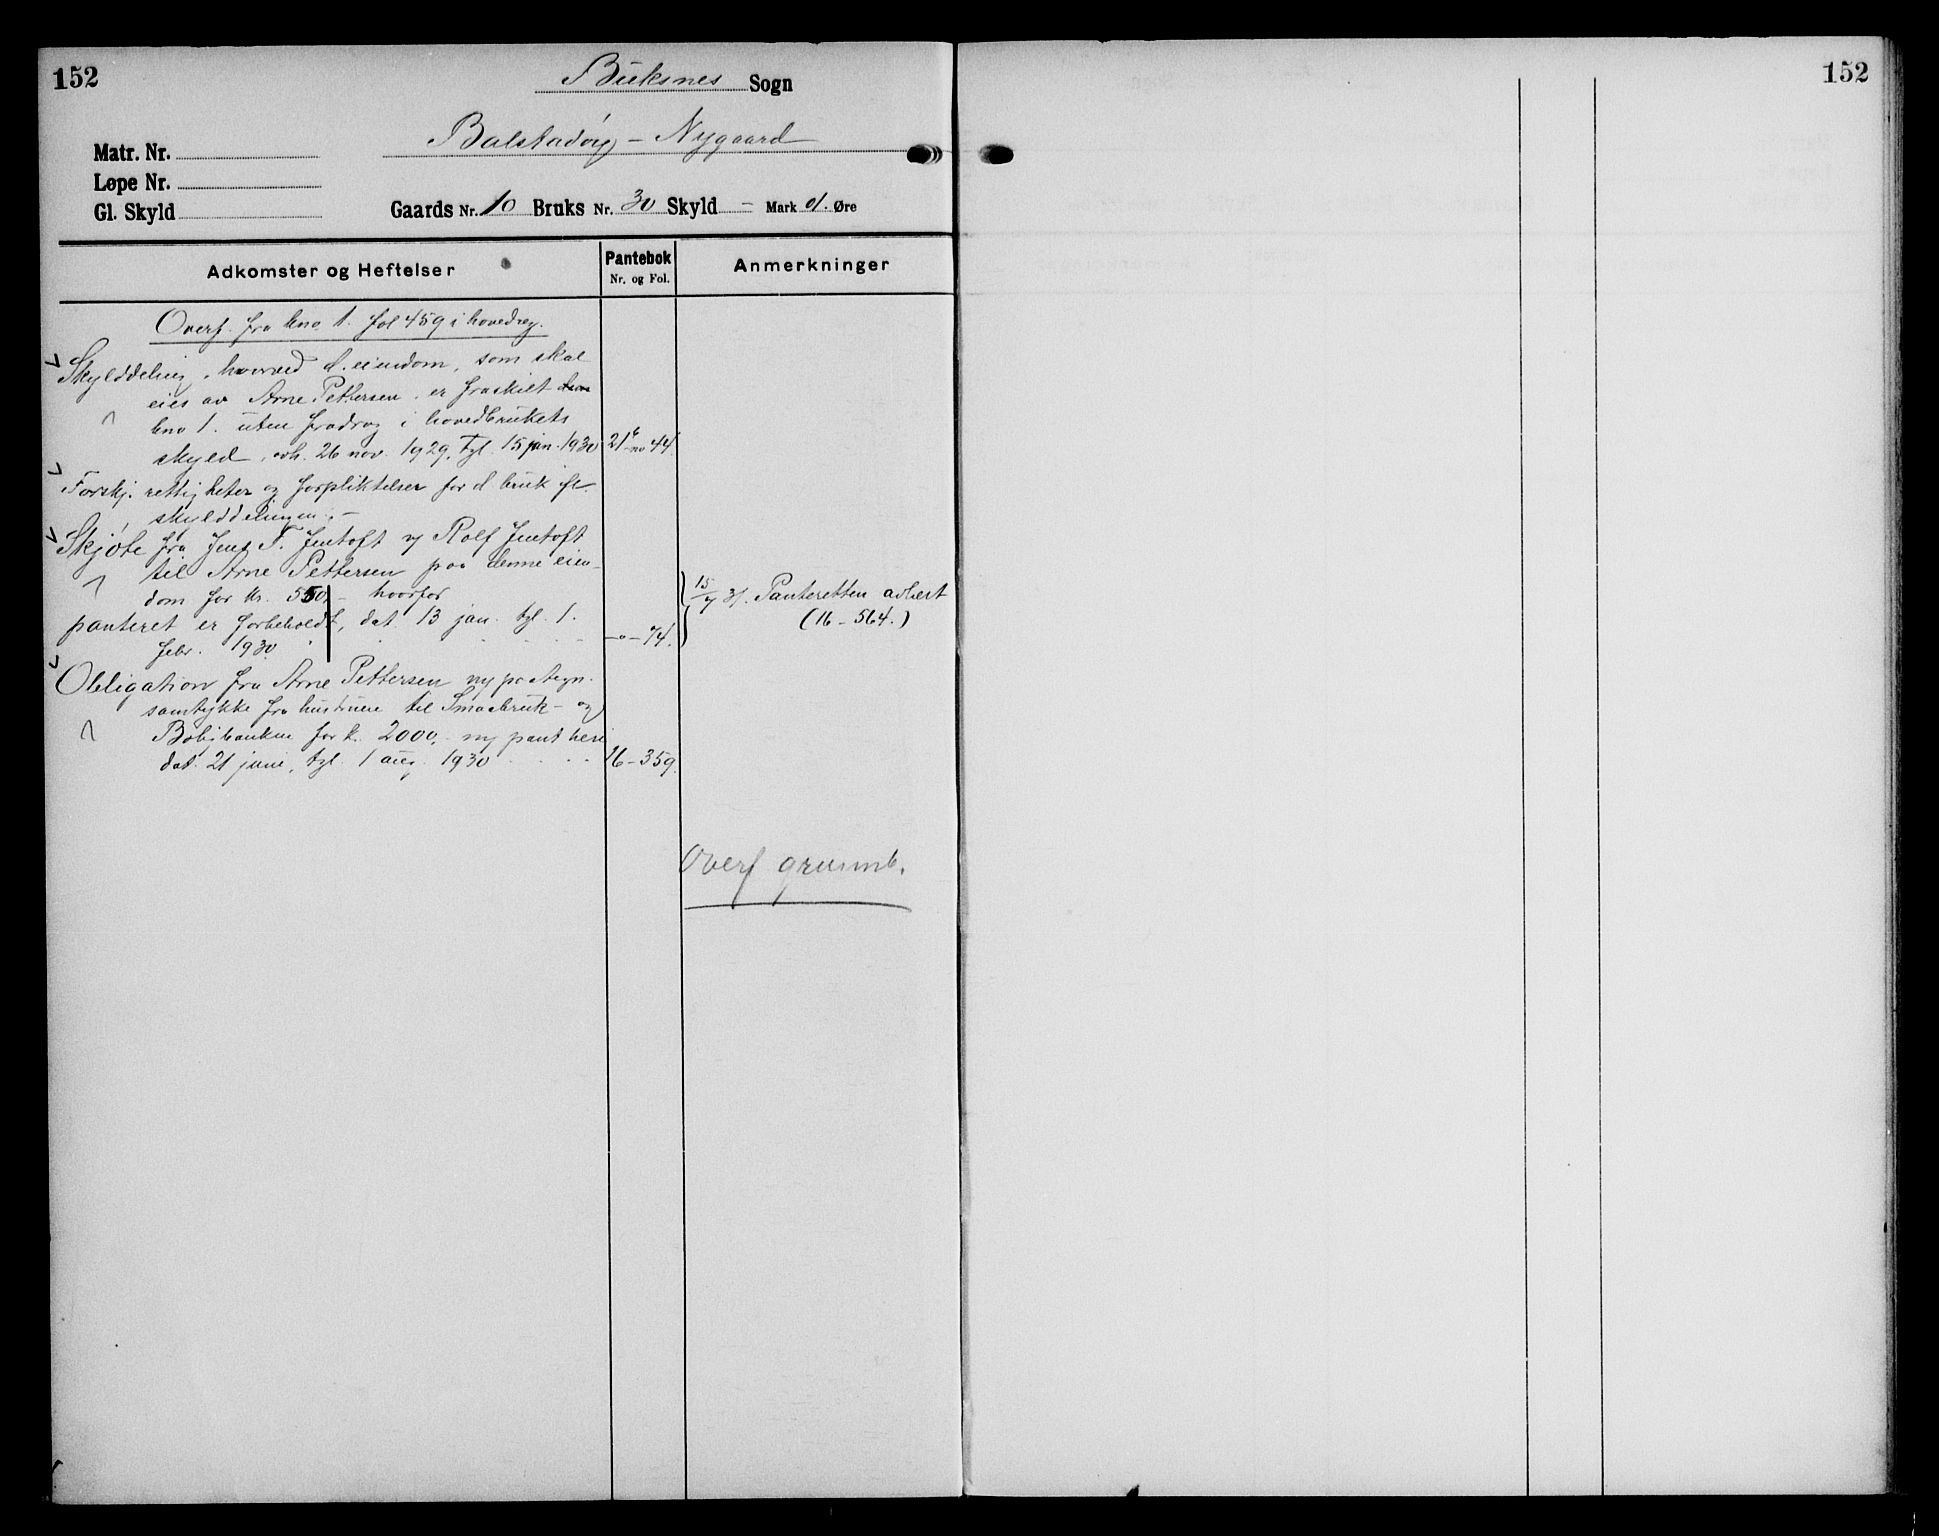 152
Buksnes Sogn
Balstadøy - Nygaard
Matr. Nr.
Løpe Nr.
Gl. Skyld
Gaards Nr. 10 Bruks Nr. 30 Skyld - Mark 01. Øre
Adkomster og Heftelser
Pantebok
Nr. og Fol.
Anmerkninger
Overf. fra bno 1. fol 459 i hovedreg.
Skylddeling, hvorved d. eiendom, som skal
eies av Arne Pettersen, er fraskilt
bno 1. uten fradrag i hovedbrukets
skyld, avh. 26 nov. 1929, tgl. 15 jan. 1930 21b no 44.
Forskj. rettigheter og forpliktelser for d bruk ifl.
skylddelingen. -
Skjøte fra Jens F. Jentoft og Rolf Jentoft
til Arne Pettersen paa denne eien-
dom for kr. 550,- hvorfor
panteret er forbeholdt, dat 13 jan. tgl. 1.
febr. 1930 -"- 74.
15/7 31. Panteretten avlæst
(16 - 564.)
Obligation fra Arne Pettersen m/paategn.
samtykke fra hustruen til Smaabruk- og
Boligbanken for k. 2000,- m/ pant heri
dat. 21 juni, tgl. 1 aug. 1930 16 - 359.
Overf grunnb.
152